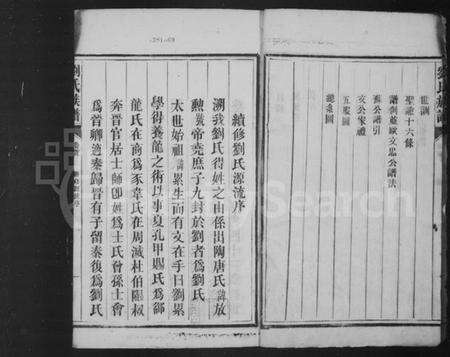 劉氏族譜
世訓
聖諭十六條
譜例並歐文忠公譜法
蘇公譜引
文公家禮
五服圖
總系圖
續修劉氏源流序
溯我劉氏得姓之由係出陶唐氏諱放
勲漢帝堯庶子九封於劉者爲劉氏
太世始祖諱累生而有文在手曰劉累
學得養龍之術以事夏孔甲賜氏爲御
龍氏在商爲豕韋氏在周滅杜伯隰叔
奔晉官居士師卽姓爲士氏曾孫士會
爲晉卿適秦歸晉有子留秦復爲劉氏
劉氏族譜